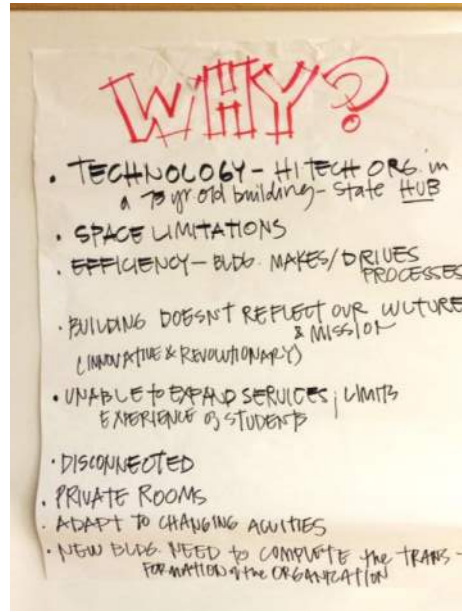 WHY?
• TECHNOLOGY - HITECH ORG. in
a 73 yr old building - State HUB
• SPACE LIMITATIONS
• EFFICIENCY - BLDG. MAKES/DRIVES
PROCESSES
• BUILDING DOESN'T REFLECT OUR CULTURE
& MISSION
(INNOVATIVE & REVOLUTIONARY)
• UNABLE to EXPAND SERVICES; LIMITS
EXPERIENCE of STUDENTS
• DISCONNECTED
• PRIVATE ROOMS
• ADAPT TO CHANGING ACUITIES
• NEW BLDG. NEED to COMPLETE the TRANS-
FORMATION of the ORGANIZATION